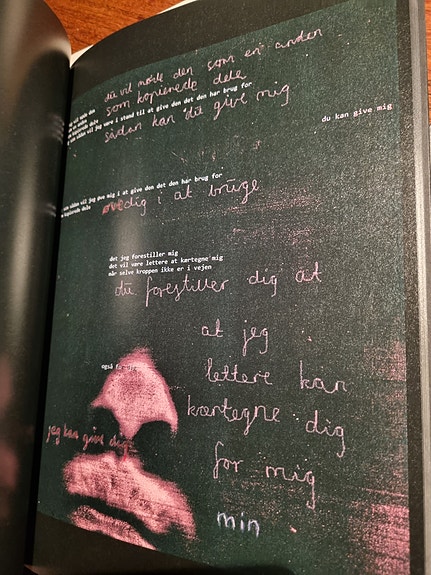 du vil møde den som en anden
som kopierede dele
som sådan vil jeg være i stand til at give den det den har brug for
sådan kan du give mig
du kan give mig
som sådan vil jeg øve mig i at give den det den har brug for
kopierede dele
øve dig i at bruge
det jeg forestiller mig
det vil være lettere at kærtegne mig
når selve kroppen ikke er i vejen
du forestiller dig at
at jeg
også
lettere kan
kærtegne dig
jeg kan give dig
for mig
min